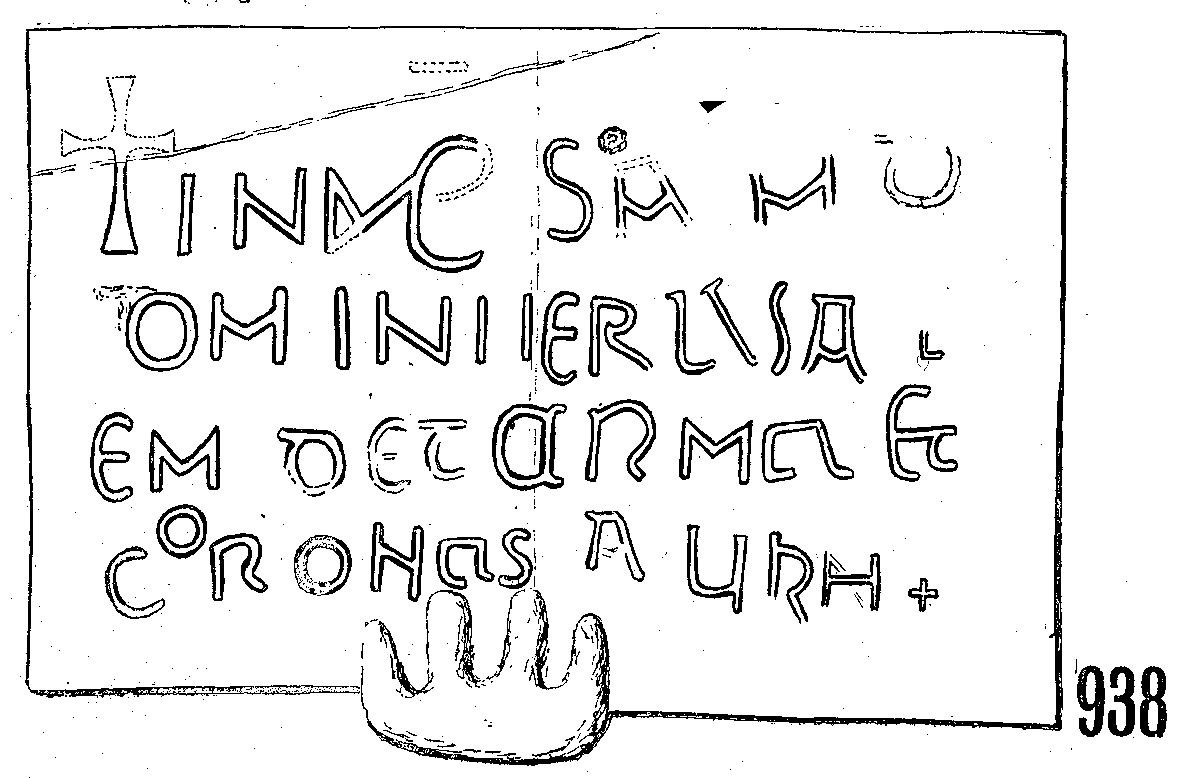 † IN
DOMINI IERUSAL
EM DET ARMA ET
CORONAS AURH +
938